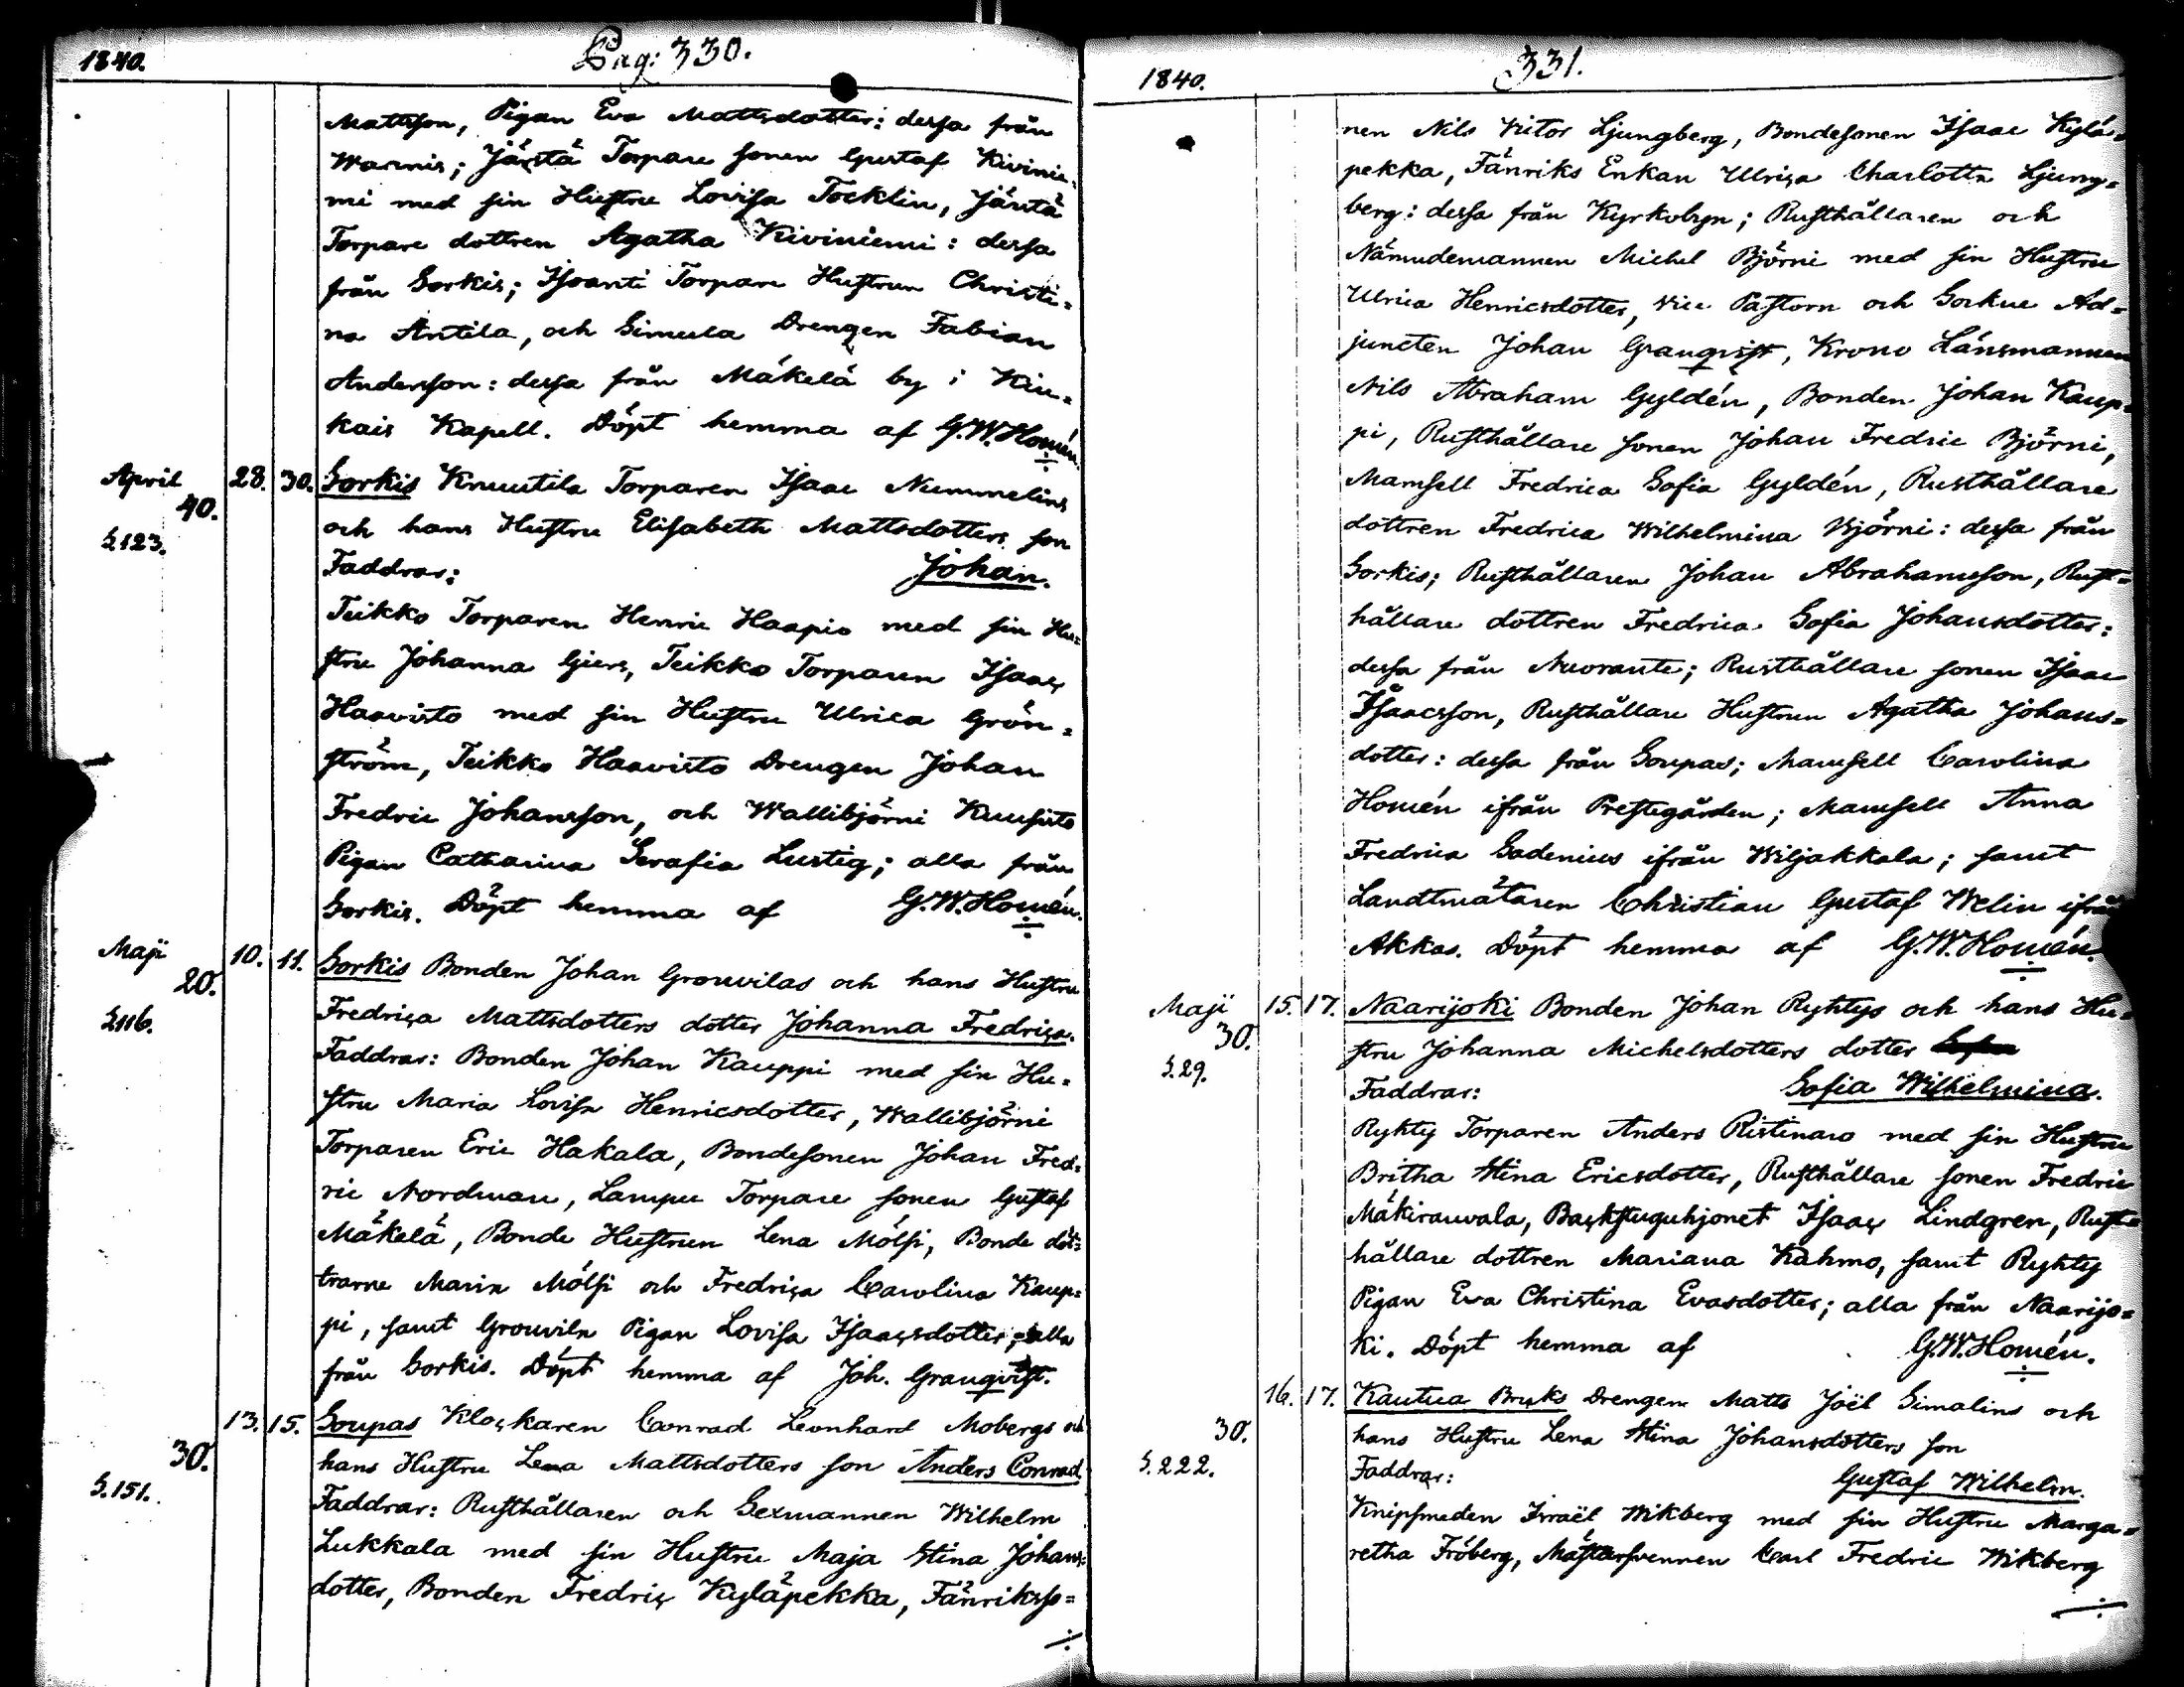 1840.
Pag: 330.
Mattsson, Pigan Eva Mattsdotter: dessa från
Warnis; Jäntä Torpare sonen Gustaf Kivinie-
mi med sin Hustru Lovisa Tocklin, Jäntä
Torpare dottren Agatha Kiviniemi: dessa
från Sorkis; Isoanti Torpare Hustrun Christi=
na Antila, och Simula Drengen Fabian
Andersson: dessa från Mäkelä by i Kiu=
kais Kapell. Döpt hemma af G.W.Homén.
April 28. 30. Sorkis Knuutila Torparen Isaac Nummelins
40. och hans Hustru Elisabeth Mattsdotters son
S.123. Faddrar: Johan.
Teikko Torparen Henric Haapio med sin Hu=
stru Johanna Giers, Teikko Torparen Isaac
Haavisto med sin Hustru Ulrica Grön=
ström, Teikko Haavisto Drengen Johan
Fredric Johansson, och Wallibjörni Kuusisto
Pigan Catharina Serafia Lustig; alla från
Sorkis. Döpt hemma af G.W.Homén.
Maji 10. 11. Sorkis Bonden Johan Grouvilas och hans Hustru
20. Fredrica Mattsdotters dotter Johanna Fredrica.
S.116. Faddrar: Bonden Johan Kauppi med sin Hu=
stru Maria Lovisa Henricsdotter, Wallibjörni
Torparen Eric Hakala, Bondesonen Johan Fred=
ric Nordman, Lampu Torpare sonen Gustaf
Mäkelä, Bonde Hustrun Lena Mölsi, Bonde döt=
trarne Maria Mölsi och Fredrica Carolina Kaup=
pi, samt Grouvila Pigan Lovisa Isaacsdotter; alla
från Sorkis. Döpt hemma af Joh. Granqvist.
13. 15. Soupas Klockaren Conrad Leonhard Mobergs och
30. hans Hustru Lena Mattsdotters son Anders Conrad
S.151. Faddrar: Rusthållaren och Sexmannen Wilhelm
Lukkala med sin Hustru Maja Stina Johans=
dotter, Bonden Fredric Kyläpekka, Fänriksso=
1840.
331.
nen Nils Victor Ljungberg, Bondesonen Isaac Kylä=
pekka, Fänriks Enkan Ulrica Charlotta Ljung=
berg: dessa från Kyrkobyn; Rusthållaren och
Nämndemannen Michel Björni med sin Hustru
Ulrica Henricsdotter, Vice Pastorn och Sockne Ad=
juncten Johan Granqvist, Krono Länsmannen
Nils Abraham Gyldén, Bonden Johan Kaup=
pi, Rusthållare sonen Johan Fredric Björni,
Mamsell Fredrica Sofia Gyldén, Rusthållare
dottren Fredrica Wilhelmina Björni: dessa från
Sorkis; Rusthållaren Johan Abrahamsson, Rust=
hållare dottren Fredrica Sofia Johansdotter:
dessa från Nuoranta; Rusthållare sonen Isaac
Isaacsson, Rusthållare Hustrun Agatha Johans=
dotter: dessa från Soupas; Mamsell Carolina
Homén ifrån Prestegården; Mamsell Anna
Fredrica Sadenius ifrån Wiljakkala; samt
Landtmätaren Christian Gustaf Welin ifrån
Akkas. Döpt hemma af G.W.Homén.
Maji 15. 17. Naarijoki Bonden Johan Ryhtys och hans Hu=
30. stru Johanna Michelsdotters dotter
S.29. Faddrar: Sofia Wilhelmina.
Ryhty Torparen Anders Ristinaro med sin Hustru
Britha Stina Ericsdotter, Rusthållare sonen Fredric
Mäkirauvala, Backstuguhjonet Isaac Lindgren, Rust=
hållare dottren Mariana Kahmo, samt Ryhty
Pigan Eva Christina Evasdotter; alla från Naarijo=
ki. Döpt hemma af G.W.Homén.
16. 17. Kautua Bruks Drengen Matts Joël Simalins och
30. hans Hustru Lena Stina Johansdotters son
S.222. Faddrar: Gustaf Wilhelm.
Knipsmeden Israël Wikberg med sin Hustru Marga=
retha Fröberg, Mästersvennen Carl Fredric Wikberg